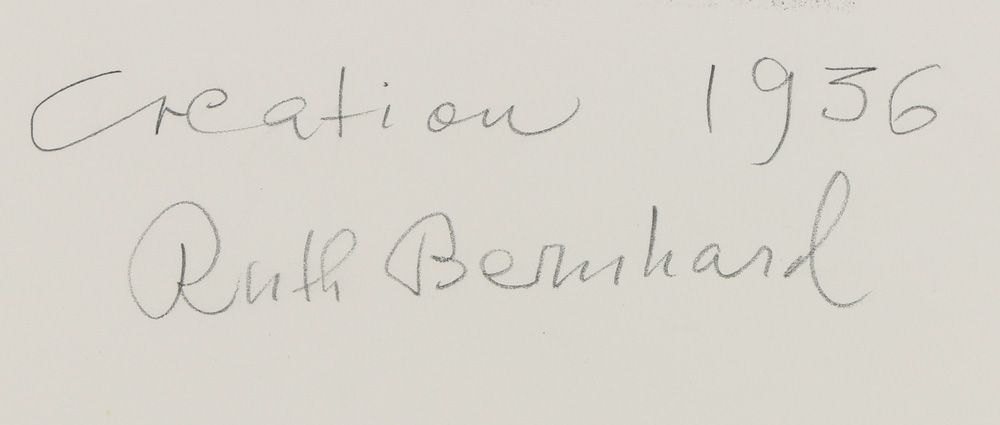 Creation 1936
Ruth Bernhard